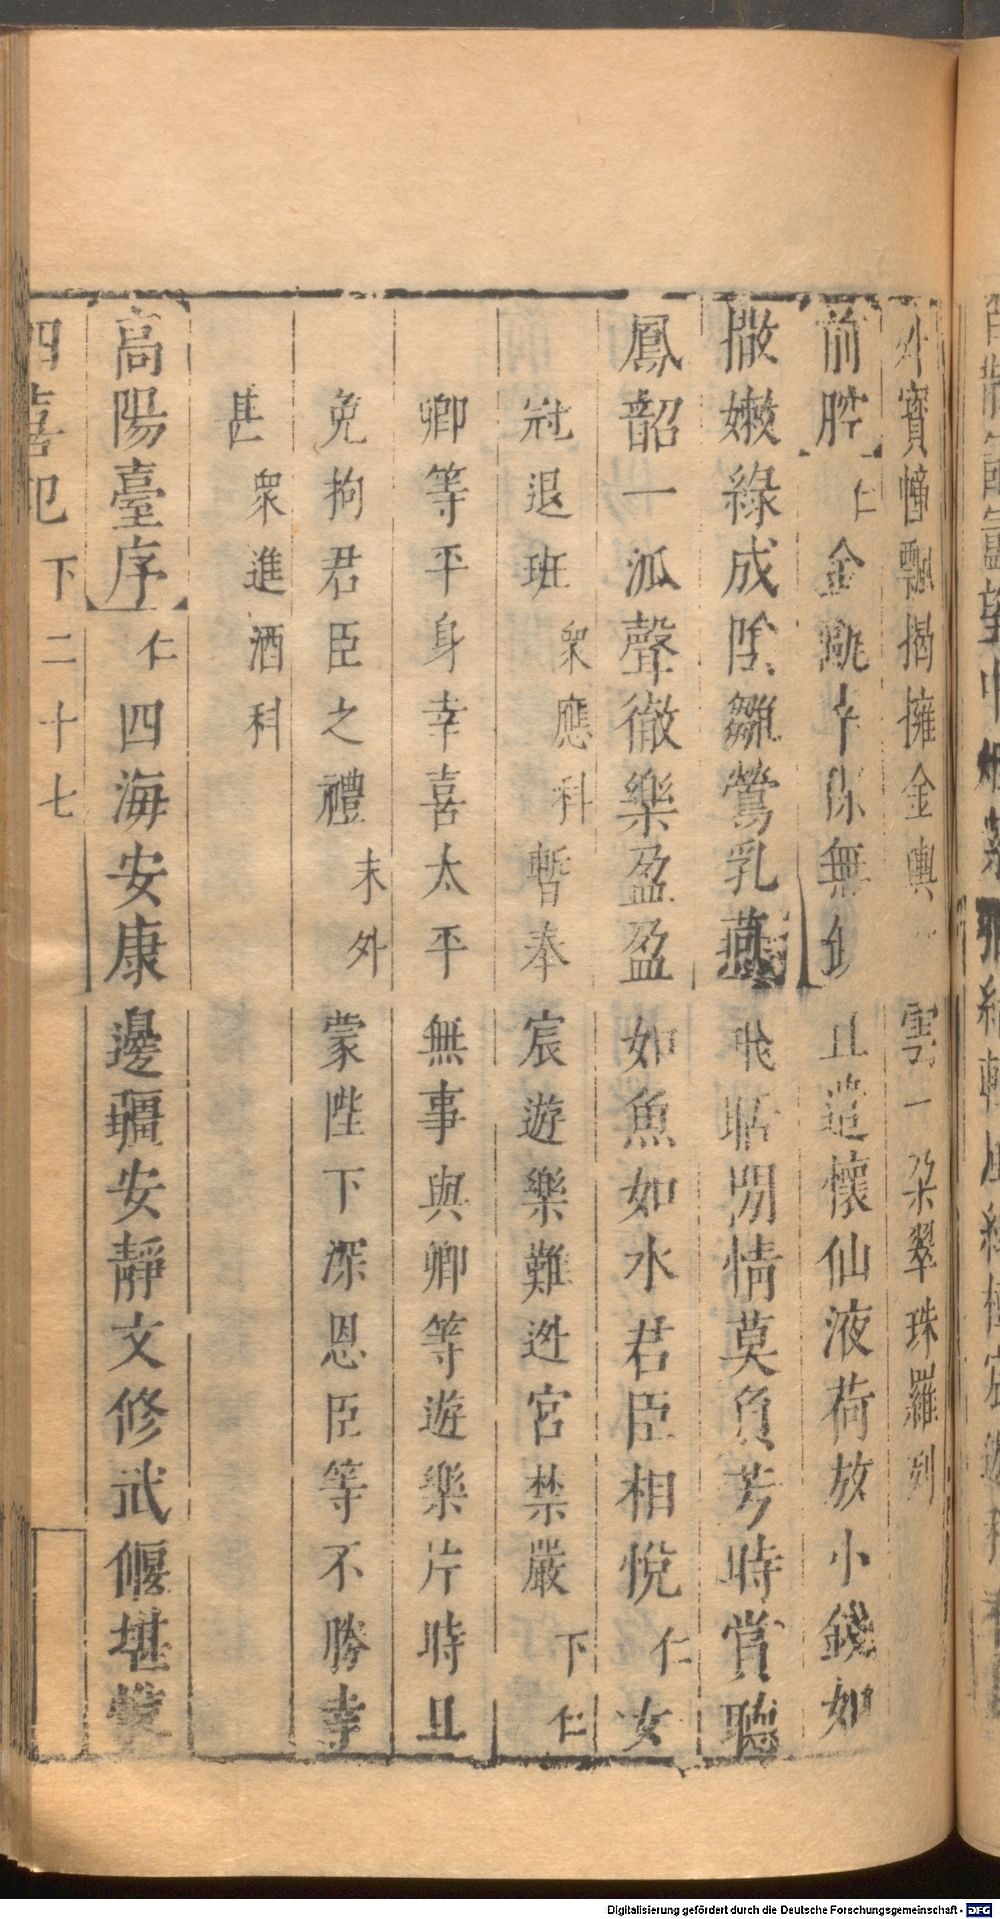 外寶幢飄揚擁金輿 雲一朶翠珠羅列
前腔 仁 金甌 無 且遣懷仙液荷放小錢如
撒嫩綠成陰雛鶯乳燕 飛 閒情莫負芳時賞聽
鳳韶一泒聲徹樂盈盈如魚如水君臣相悅 仁 女
冠退班 衆應科 暫奉宸遊樂難迯宮禁嚴 下 仁
卿等平身幸喜太平無事與卿等遊樂片時且
免拘君臣之禮 末外 蒙陛下深恩臣等不勝幸
甚 衆進酒科
高陽臺序 仁 四海安康邊疆安靜文修武偃堪
四喜記 下 二十七
Digitalisierung gefördert durch die Deutsche Forschungsgemeinschaft - DFG